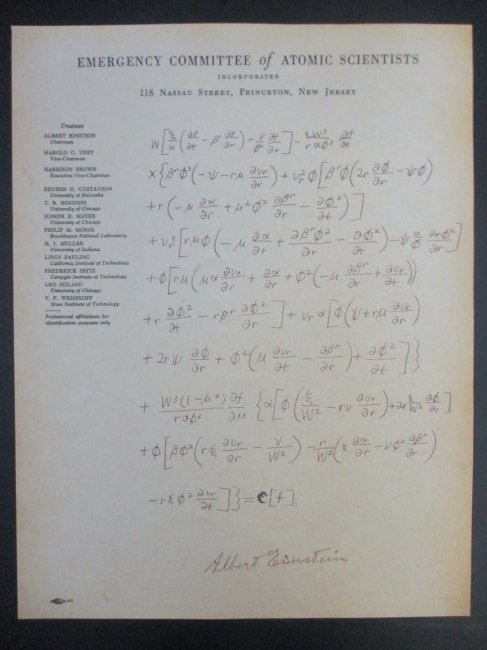 EMERGENCY COMMITTEE of ATOMIC SCIENTISTS
INCORPORATED
118 NASSAU STREET, PRINCETON, NEW JERSEY
Trustees
ALBERT EINSTEIN
Chairman
HAROLD C. UREY
Vice-Chairman
HARRISON BROWN
Executive Vice-Chairman
REUBEN G. GUSTAVSON
University of Nebraska
T. R. HOGNESS
University of Chicago
JOSEPH E. MAYER
University of Chicago
PHILIP M. MORSE
Brookhaven National Laboratory
H. J. MULLER
University of Indiana
LINUS PAULING
California Institute of Technology
FREDERICK SEITZ
Carnegie Institute of Technology
LEO SZILARD
University of Chicago
V. F. WEISSKOPF
Mass Institute of Technology
Professional affiliations for
identification purposes only
W[ξ/α(∂f/∂t − β^r ∂f/∂r) + ν/φ² ∂f/∂r] − εW³/rαφ³ ∂f/∂ε
×{β^rφ³(−ψ − rμ ∂v_r/∂r) + v_r²φ[β^rφ(2r ∂φ/∂r − ψφ)
+ r(−μ ∂α/∂r + μ²φ² ∂β^r/∂r − ∂φ²/∂t)]
+ v_r³[rμφ(−μ ∂α/∂r + ∂β^rφ²/∂r − ∂φ²/∂t) − ψ α/φ ∂rφ²/∂r]
+ φ[rμ(μα ∂v_r/∂r + ∂α/∂r + φ²(−μ ∂β^r/∂r + ∂v_r/∂t))
+ r ∂φ²/∂t − rβ^r ∂φ²/∂r] + v_r α[φ(ψ + rμ ∂v_r/∂r)
+ 2rψ ∂φ/∂r + φ²(μ ∂v_r/∂t − ∂β^r/∂r) + ∂φ²/∂t]}
+ W³(1−μ²)/rαφ³ ∂f/∂μ {α[φ(ξ/W² − rν ∂v_r/∂r) + 2r ξ/W² ∂φ/∂r]
+ φ[βφ²(rξ ∂v_r/∂r − ν/W²) − r/W²(ξ ∂α/∂r − νφ² ∂β^r/∂r)
− rξφ² ∂v_r/∂t]} = C[f],
Albert Einstein